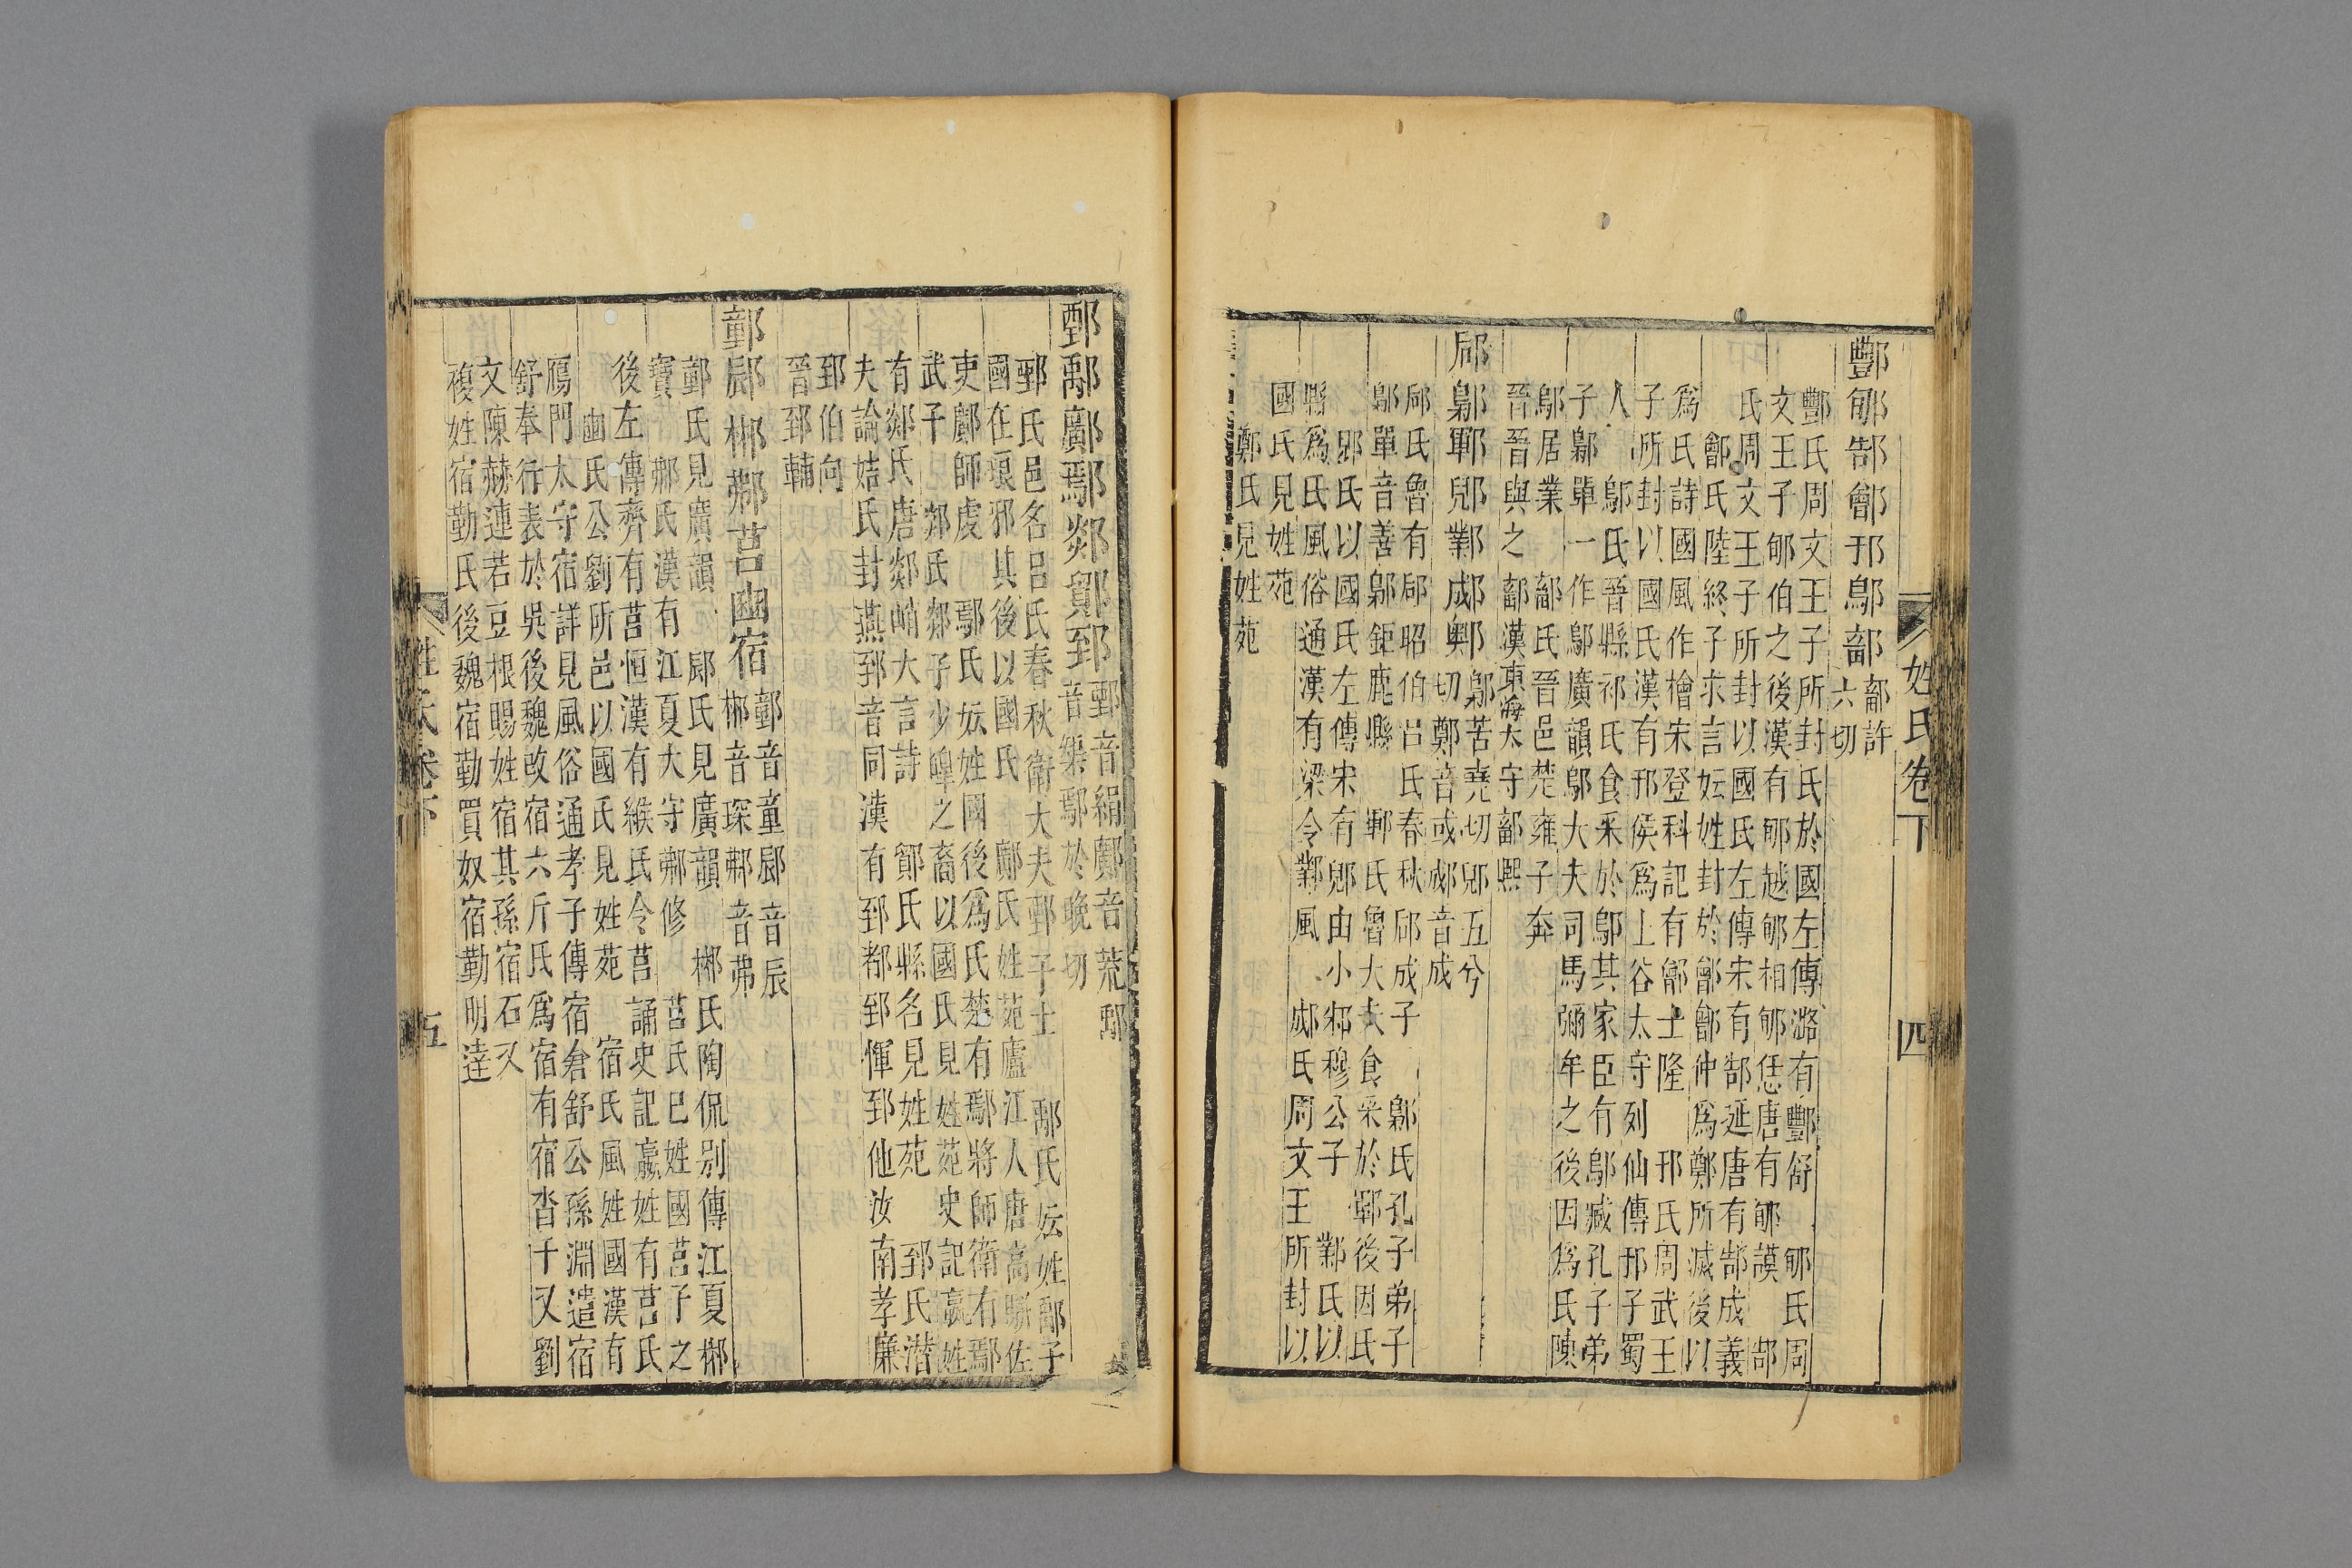 姓氏卷下
四
酆郇郜鄶邘鄔鄐
鄐許
六切
酆氏周文王子所封氏於國左傳潞有酆舒
郇氏周
文王子郇伯之後漢有郇越郇相郇恁唐有郇謨
郜
氏周文王子所封以國氏左傳宋有郜延唐有郜成義
鄶氏陸終子求言妘姓封於鄶鄶仲爲鄭所滅後以
爲氏詩國風作檜宋登科記有鄶士隆
邘氏周武王
子所封以國氏漢有邘侯爲上谷太守列仙傳邘子蜀
人
鄔氏晉縣祁氏食采於鄔其家臣有鄔臧孔子弟
子鄡單一作鄔廣韻鄔大夫司馬彌牟之後因爲氏陳
鄔居業
鄐氏晉邑楚雍子奔
晉晉與之鄐漢東海太守鄐熙
郈鄡鄆郳鄴郕郹
鄡苦堯切郳五兮
切鄭音或郕音成
郈氏魯有郈昭伯呂氏春秋郈成子
鄡氏孔子弟子
鄡單音善鄡鉅鹿縣
鄆氏魯大夫食采於鄆後因氏
郳氏以國氏左傳宋有郳由小邾穆公子
鄴氏以
縣爲氏風俗通漢有梁令鄴風
郕氏周文王所封以
國氏見姓苑
鄭氏見姓苑
鄄鄅鄺鄢郯鄮郅
鄄音絹鄺音荒鄅
音禁鄢於晚切
鄄氏邑名呂氏春秋衛大夫鄄子士
鄅氏妘姓鄅子
國在琅邪其後以國氏
鄺氏姓苑廬江人唐高駢佐
吏鄺師虔
鄢氏妘姓國後爲氏楚有鄢將師衛有鄢
武子
郯氏郯子少皞之裔以國氏見姓苑史記嬴姓
有郯氏唐郯峭大言詩
鄮氏縣名見姓苑
郅氏潛
夫論姞氏封燕郅音同漢有郅都郅惲郅他汝南孝廉
郅伯向
晉郅輔
鄞郮郴鄪莒幽宿
童音
郴音琛
音弗
氏見廣韻
氏見廣韻
郴氏陶侃別傳江夏郴
寶
氏漢有江夏大守
修
莒氏巳姓國莒子之
後左傳齊有莒恒漢有緱氏令莒誦史記嬴姓有莒氏
幽氏公劉所邑以國氏見姓苑
宿氏風姓國漢有
鴈門太守宿詳見風俗通孝子傳宿倉舒公孫淵遣宿
舒奉行表於吳後魏改宿六斤氏爲宿有宿沓千又劉
文陳赫連若豆根賜姓宿其孫宿石又
複姓宿勤氏後魏宿勤買奴宿勤明達
姓氏卷下
五